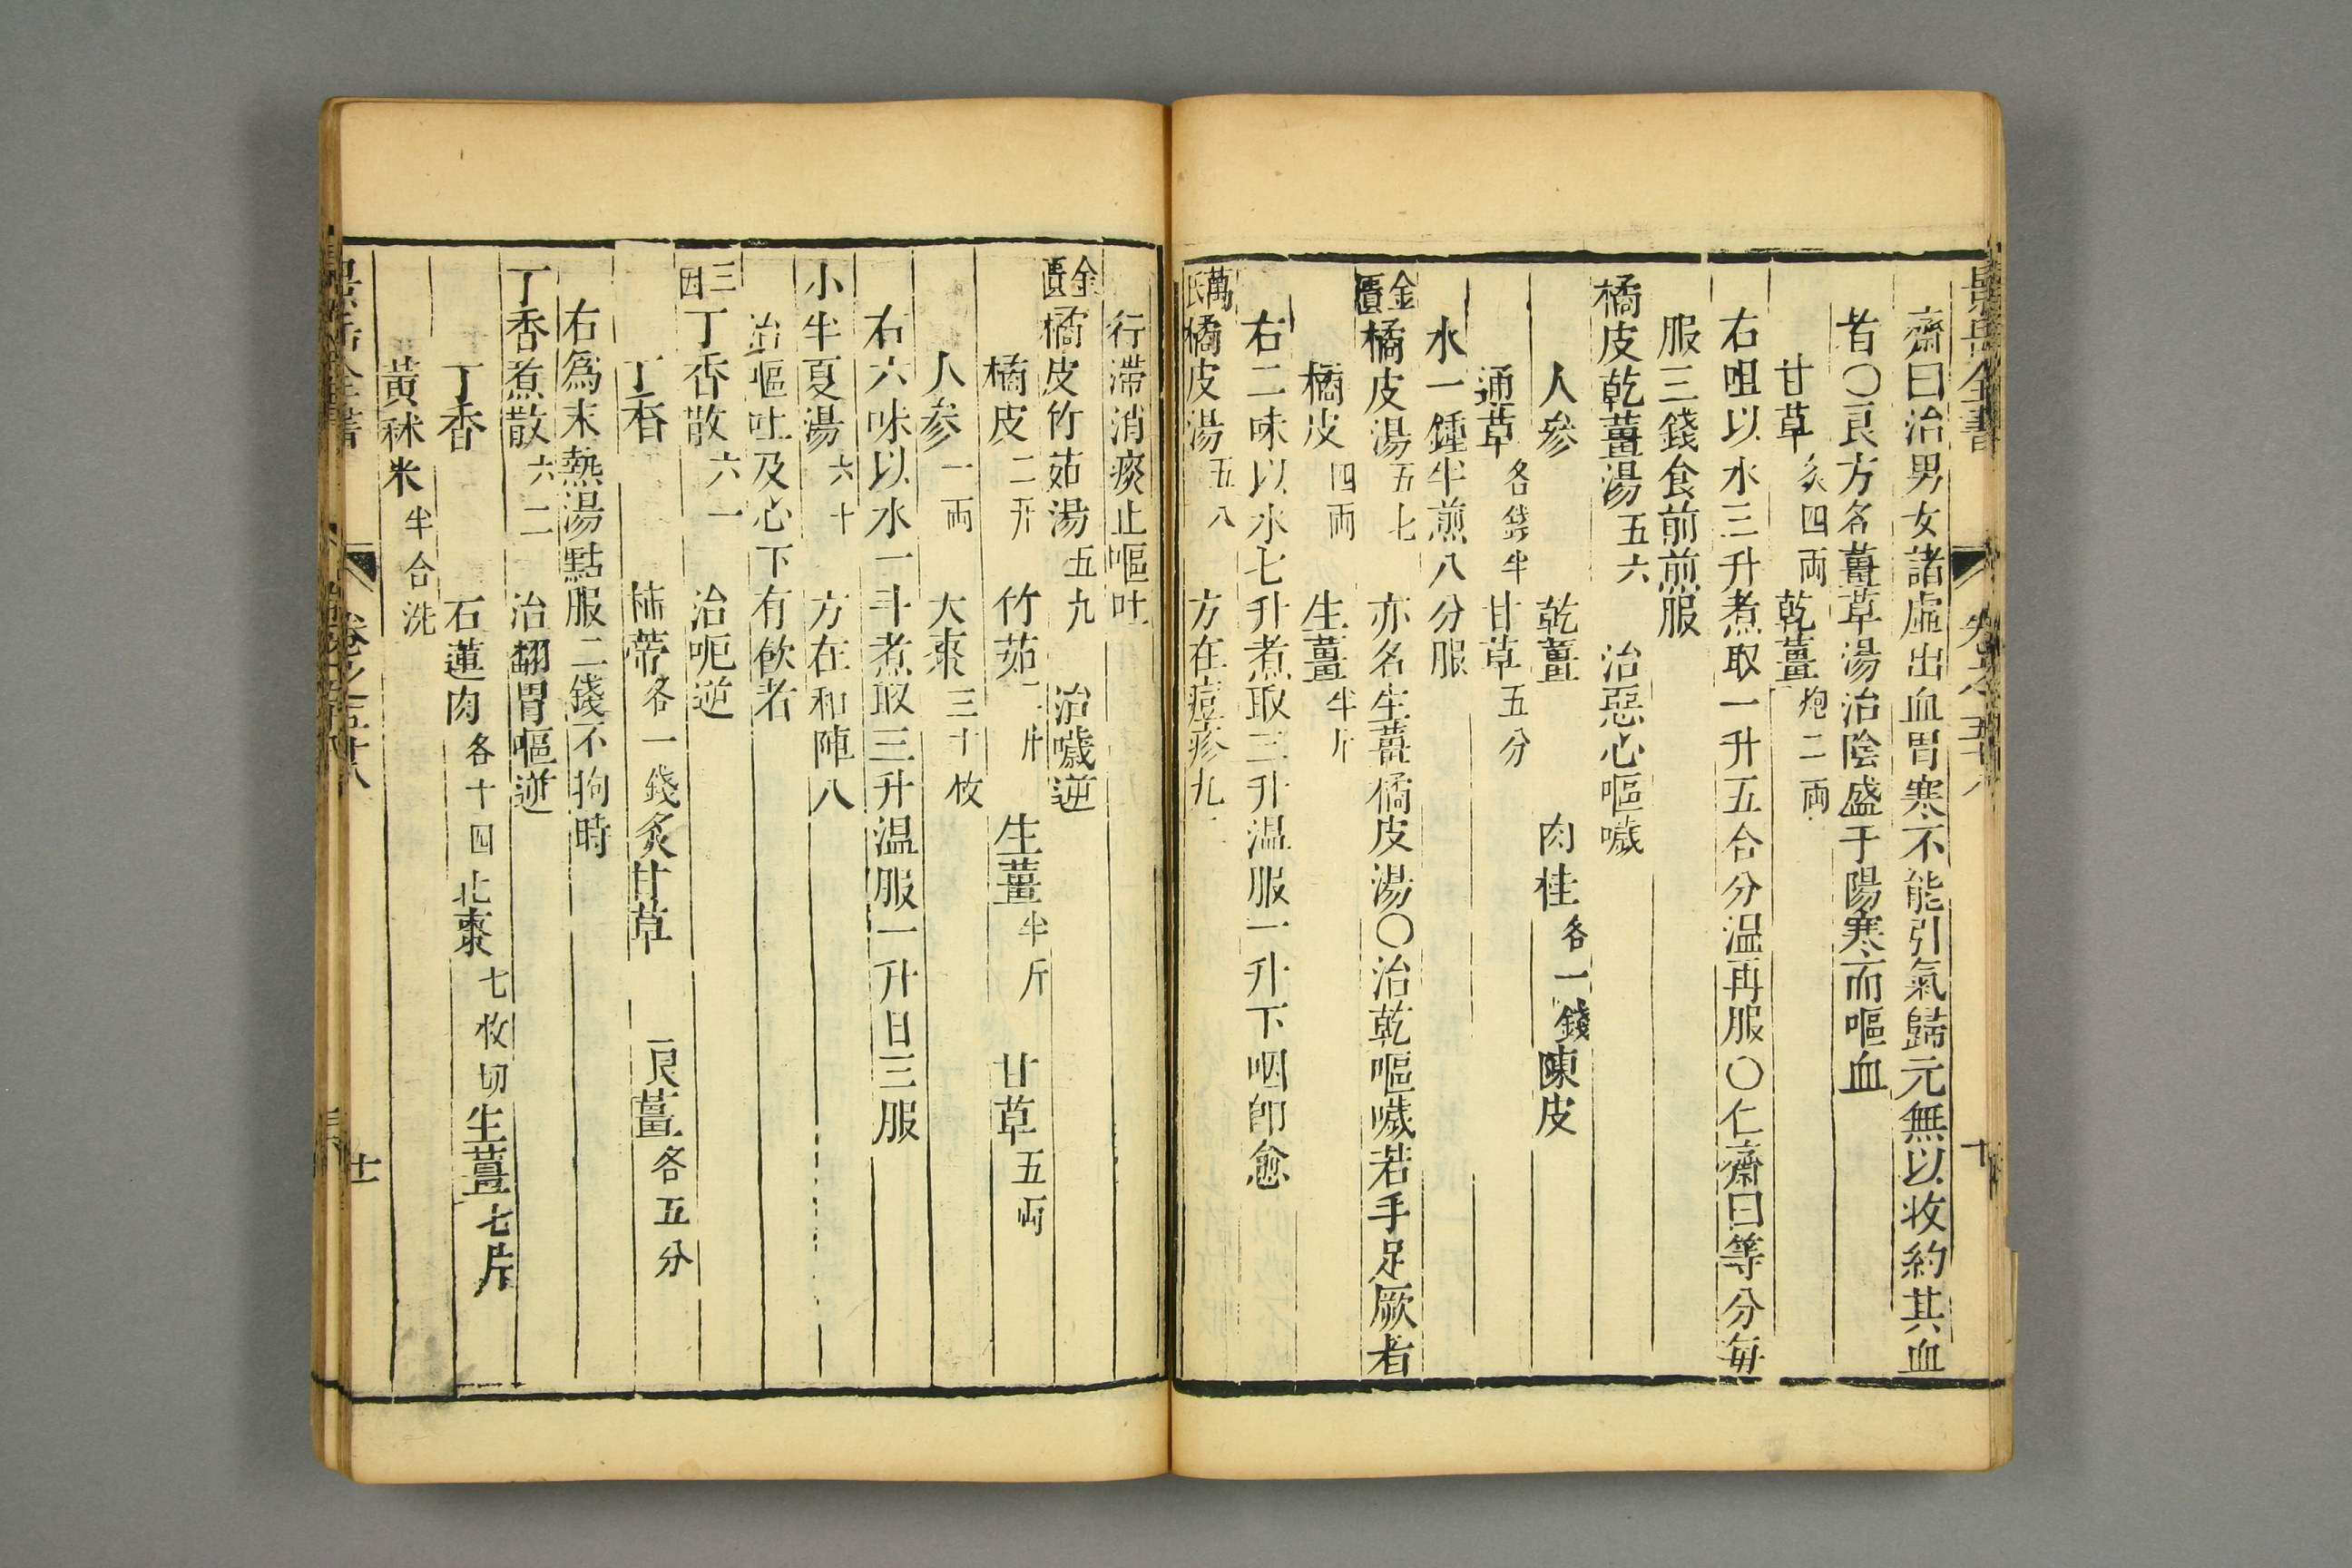 景岳全書
卷之五十八
十
齋曰治男女諸虛出血胃寒不能引氣歸元無以收約其血
者〇良方名薑草湯治陰盛于陽寒而嘔血
甘草 炙四兩 乾薑 炮二兩
右咀以水三升煮取一升五合分温再服〇仁齋曰等分每
服三錢食前煎服
橘皮乾薑湯 五六 治惡心嘔噦
人參 乾薑 肉桂 各一錢 陳皮
通草 各錢半 甘草 五分
水一鍾半煎八分服
金匱 橘皮湯 五七 亦名生薑橘皮湯〇治乾嘔噦若手足厥者
橘皮 四兩 生薑 半斤
右二味以水七升煮取三升温服一升下咽卽愈
萬氏 橘皮湯 五八 方在痘疹九
行滯消痰止嘔吐
金匱 橘皮竹茹湯 五九 治噦逆
橘皮 二升 竹茹 二升 生薑 半斤 甘草 五兩
人參 一兩 大棗 三十枚
右六味以水一斗煮取三升温服一升日三服
小半夏湯 六十 方在和陣八
治嘔吐及心下有飲者
三因 丁香散 六一 治呃逆
丁香 柿蒂 各一錢 炙甘草 良薑 各五分
右爲末熱湯點服二錢不拘時
丁香煮散 六二 治翻胃嘔逆
丁香 石蓮肉 各十四 北棗 七枚切 生薑 七片
黃秫米 半合洗
景岳全書
卷之五十八
十一